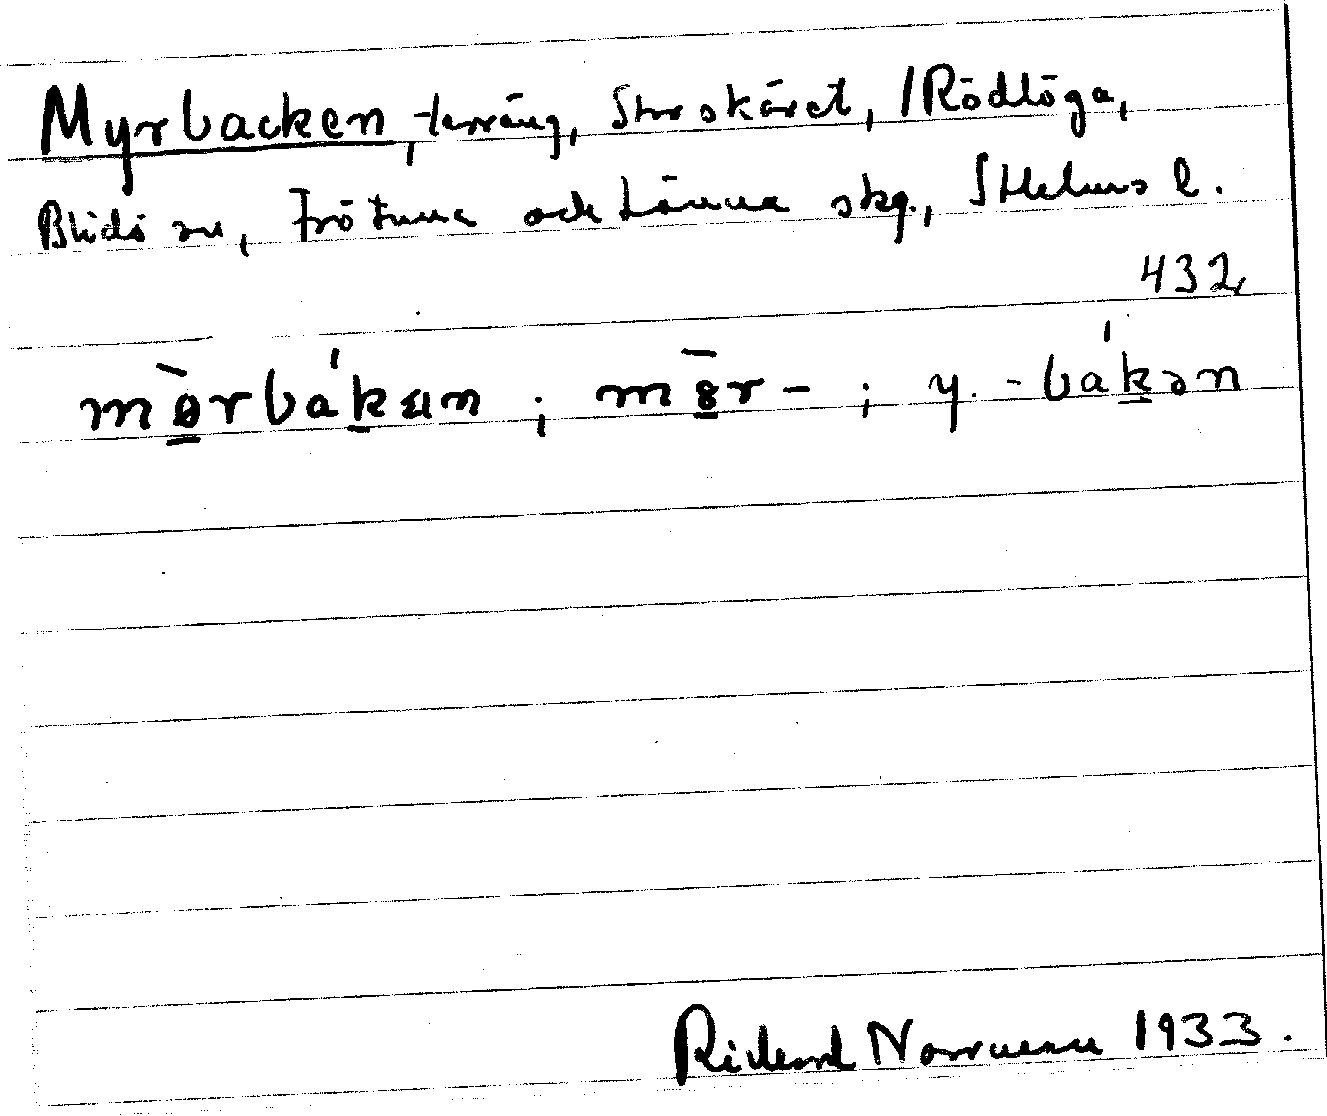 Myrbacken, terräng, Storskäret, /Rödlöga,
Blidö sn, Frötuna och Länna skg., Sthlms l.
432
mørbákæn ; mør- ; y. -bákən
Rickard Norrman 1933.